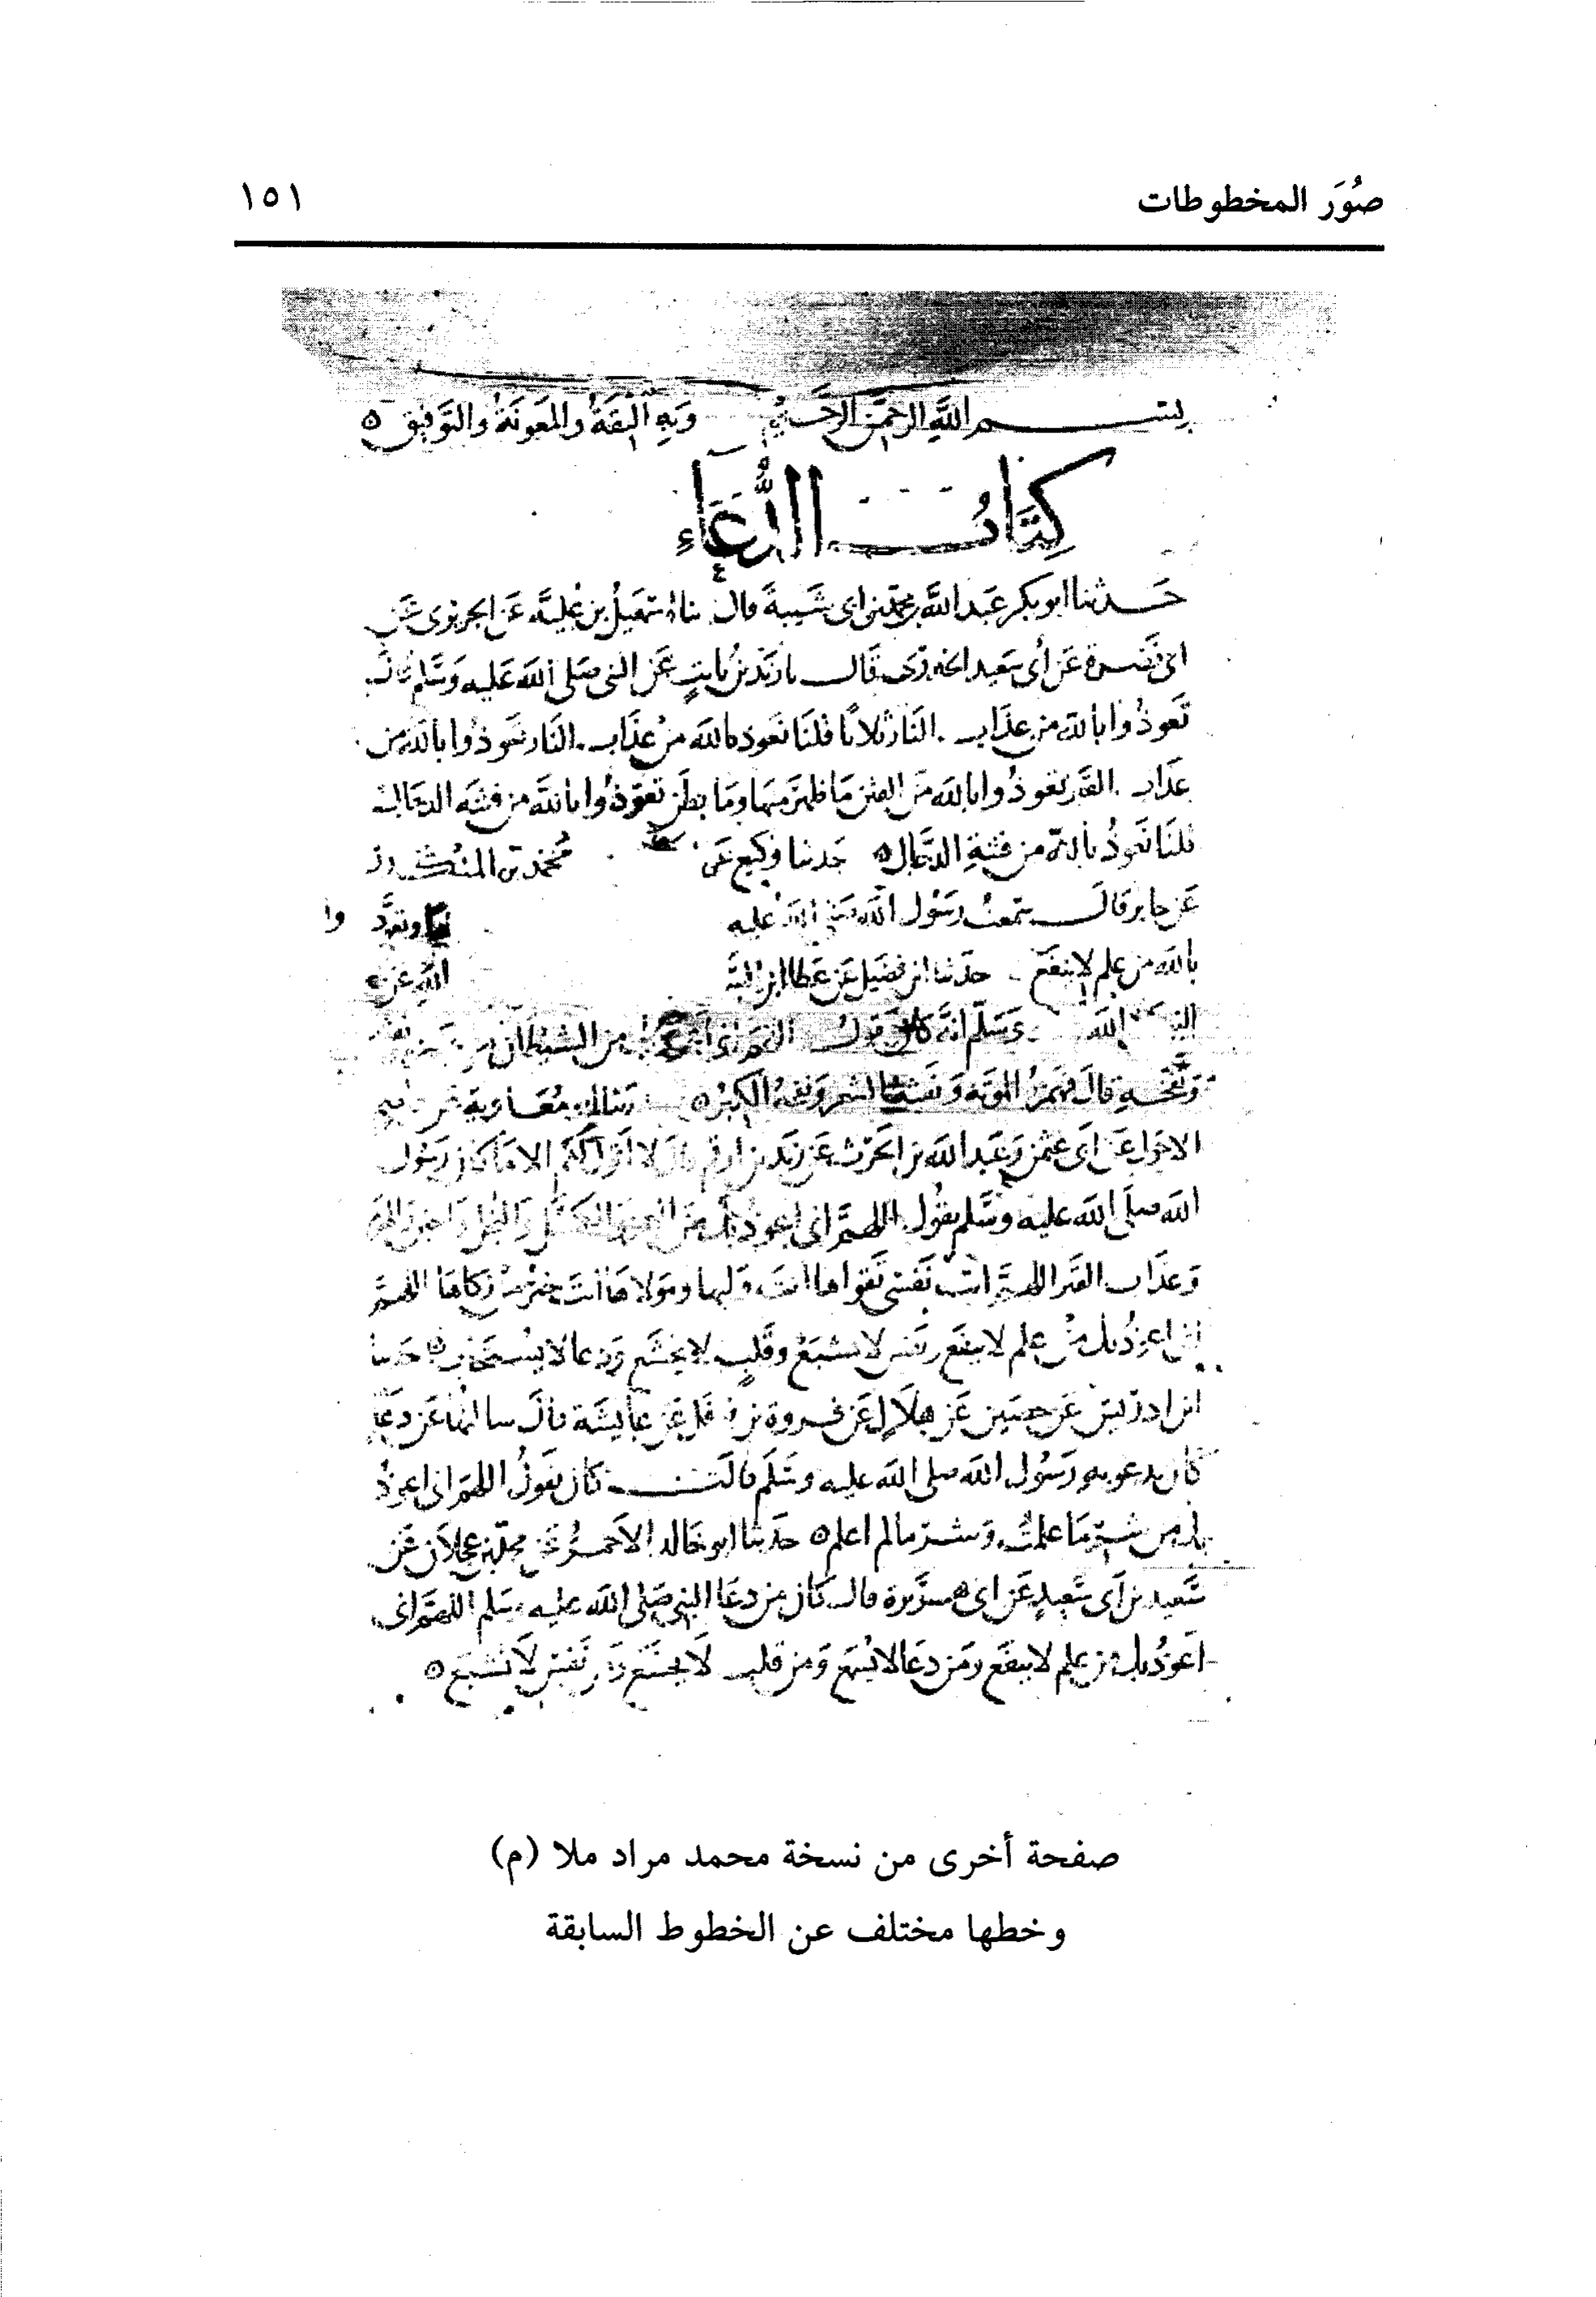 صُوَر المخطوطات
١٥١
بسم الله الرحمن الرحيم وبه الثقة والمعونة والتوفيق
كتاب الدعاء
حدثنا ابو بكر عبد الله بن محمد بن ابى شيبة قال نا اسمعيل بن علية عن الجريرى عن
ابى نضرة عن أبى سعيد الخدرى قال نا زيد بن ثابت عن النبى صلى الله عليه وسلم قال
تعوذوا بالله من عذاب النار ثلاثا قلنا نعوذ بالله من عذاب النار تعوذوا بالله من
عذاب القبر تعوذوا بالله من الفتن ما ظهر منها وما بطن تعوذوا بالله من فتنة الدجال
قلنا نعوذ بالله من فتنة الدجال حدثنا وكيع عن محمد بن المنكدر
عن جابر قال سمعت رسول الله صلى الله عليه
بالله من علم لا ينفع حدثنا ابن فضيل عن عطا ابن الله عن
الله وسلم انه كان يقول اللهم انى من الشيطان
قال فهمزه الموتة ونفثه الشعر ونفخه الكبر معاوية عن
الاحول عن ابى عثمن وعبد الله بن الحرث عن زيد بن ارقم قال لا اقول لكم الا ما كان رسول
الله صلى الله عليه وسلم يقول اللهم انى اعوذ بك من العجز والكسل والبخل والجبن
وعذاب القبر اللهم ات نفسى تقواها انت وليها ومولاها انت خير من زكاها اللهم
انى اعوذ بك من علم لا ينفع ونفس لا تشبع وقلب لا يخشع ودعا لا يستجاب حدثنا
ابن ادريس عن حصين عن هلال عن فروة بن نوفل عن عايشة قال سالتها عن دعا
كان يدعو به رسول الله صلى الله عليه وسلم قالت كان يقول اللهم انى اعوذ
بك من شر ما علمت وشر مالم اعلم حدثنا ابو خالد الاحمر عن محمد بن عجلان عن
سعيد بن أبى سعيد عن ابى هريرة قال كان من دعا النبى صلى الله عليه وسلم اللهم انى
اعوذ بك من علم لا ينفع ومن دعا لا يسمع ومن قلب لا يخشع ومن نفس لا تشبع
صفحة أخرى من نسخة محمد مراد ملا (م)
وخطها مختلف عن الخطوط السابقة